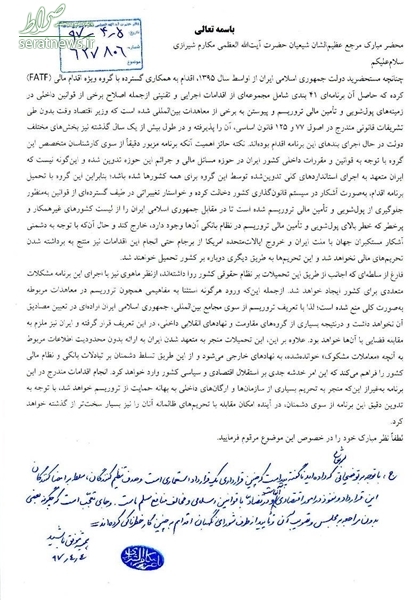 صراط
seratnews.ir
باسمه تعالی
۹۷/۴/۵
محضر مبارک مرجع عظیم‌الشان شیعیان حضرت آیت‌الله العظمی مکارم شیرازی
سلام‌علیکم
چنانچه مستحضرید دولت جمهوری اسلامی ایران از اواسط سال ۱۳۹۵، اقدام به همکاری گسترده با گروه ویژه اقدام مالی (FATF)
کرده که حاصل آن برنامه‌ای ۴۱ بندی شامل مجموعه‌ای از اقدامات اجرایی و تقنینی ازجمله اصلاح برخی از قوانین داخلی در
زمینه‌های پول‌شویی و تأمین مالی تروریسم و پیوستن به برخی از معاهدات بین‌المللی شده است که وزیر اقتصاد وقت بدون طی
تشریفات قانونی مندرج در اصول ۷۷ و ۱۲۵ قانون اساسی، آن را پذیرفته و در طول بیش از یک سال گذشته نیز بخش‌های مختلف
دولت در حال اجرای بندهای این برنامه اقدام بوده‌اند. نکته حائز اهمیت آنکه برنامه مزبور دقیقاً از سوی کارشناسان متخصص این
گروه با توجه به قوانین و مقررات داخلی کشور ایران در حوزه مسائل مالی و جرائم این حوزه تدوین شده و این‌گونه نیست که
ایران متعهد به اجرای استانداردهای کلی تدوین‌شده توسط این گروه برای همه کشورها شده باشد؛ بنابراین این گروه با تحمیل
برنامه اقدام، به‌صورت آشکار در سیستم قانون‌گذاری کشور دخالت کرده و خواستار تغییراتی در طیف گسترده‌ای از قوانین به‌منظور
جلوگیری از پول‌شویی و تأمین مالی تروریسم شده است تا در مقابل جمهوری اسلامی ایران را از لیست کشورهای غیرهمکار و
پرخطر که خطر بالای پول‌شویی و تأمین مالی تروریسم در نظام بانکی آن‌ها وجود دارد، خارج کند و حال آن‌که با توجه به دشمنی
آشکار مستکبران جهان با ملت ایران و خروج ایالات‌متحده امریکا از برجام حتی انجام این اقدامات نیز منتج به برداشته شدن
تحریم‌های مالی نخواهد شد و این تحریم‌ها به طریق دیگری دوباره بر کشور تحمیل خواهند شد.
فارغ از سلطه‌ای که اجانب از طریق این تحمیلات بر نظام حقوقی کشور روا داشته‌اند، ازنظر ماهوی نیز با اجرای این برنامه مشکلات
متعددی برای کشور ایجاد خواهد شد. ازجمله این‌که ورود هرگونه استثنا به مفاهیمی همچون تروریسم در معاهدات مربوطه
به‌صورت کلی منع شده است؛ لذا با تعریف تروریسم از سوی مجامع بین‌المللی، جمهوری اسلامی ایران اراده‌ای در تعیین مصادیق
آن نخواهد داشت و درنتیجه بسیاری از گروه‌های مقاومت و نهادهای انقلابی داخلی، در این تعریف قرار گرفته و ایران نیز ملزم به
مقابله قضایی با آن‌ها خواهد بود. علاوه بر این، این تحمیلات منجر به متعهد شدن ایران به ارائه بدون محدودیت اطلاعات مربوط
به آنچه «معاملات مشکوک» خوانده‌شده، به نهادهای خارجی می‌شود و از این طریق تسلط دشمنان بر تبادلات بانکی و نظام مالی
کشور را فراهم می‌کند که این امر خدشه جدی بر استقلال اقتصادی و سیاسی کشور وارد خواهد کرد. انجام اقدامات مندرج در این
برنامه به‌غیراز این‌که منجر به تحریم بسیاری از سازمان‌ها و ارگان‌های داخلی به بهانه حمایت از تروریسم خواهد شد، با توجه به
تدوین دقیق این برنامه از سوی دشمنان، در آینده امکان مقابله با تحریم‌های ظالمانه آنان را نیز بسیار سخت‌تر از گذشته خواهد
کرد.
لطفاً نظر مبارک خود را در خصوص این موضوع مرقوم فرمایید.